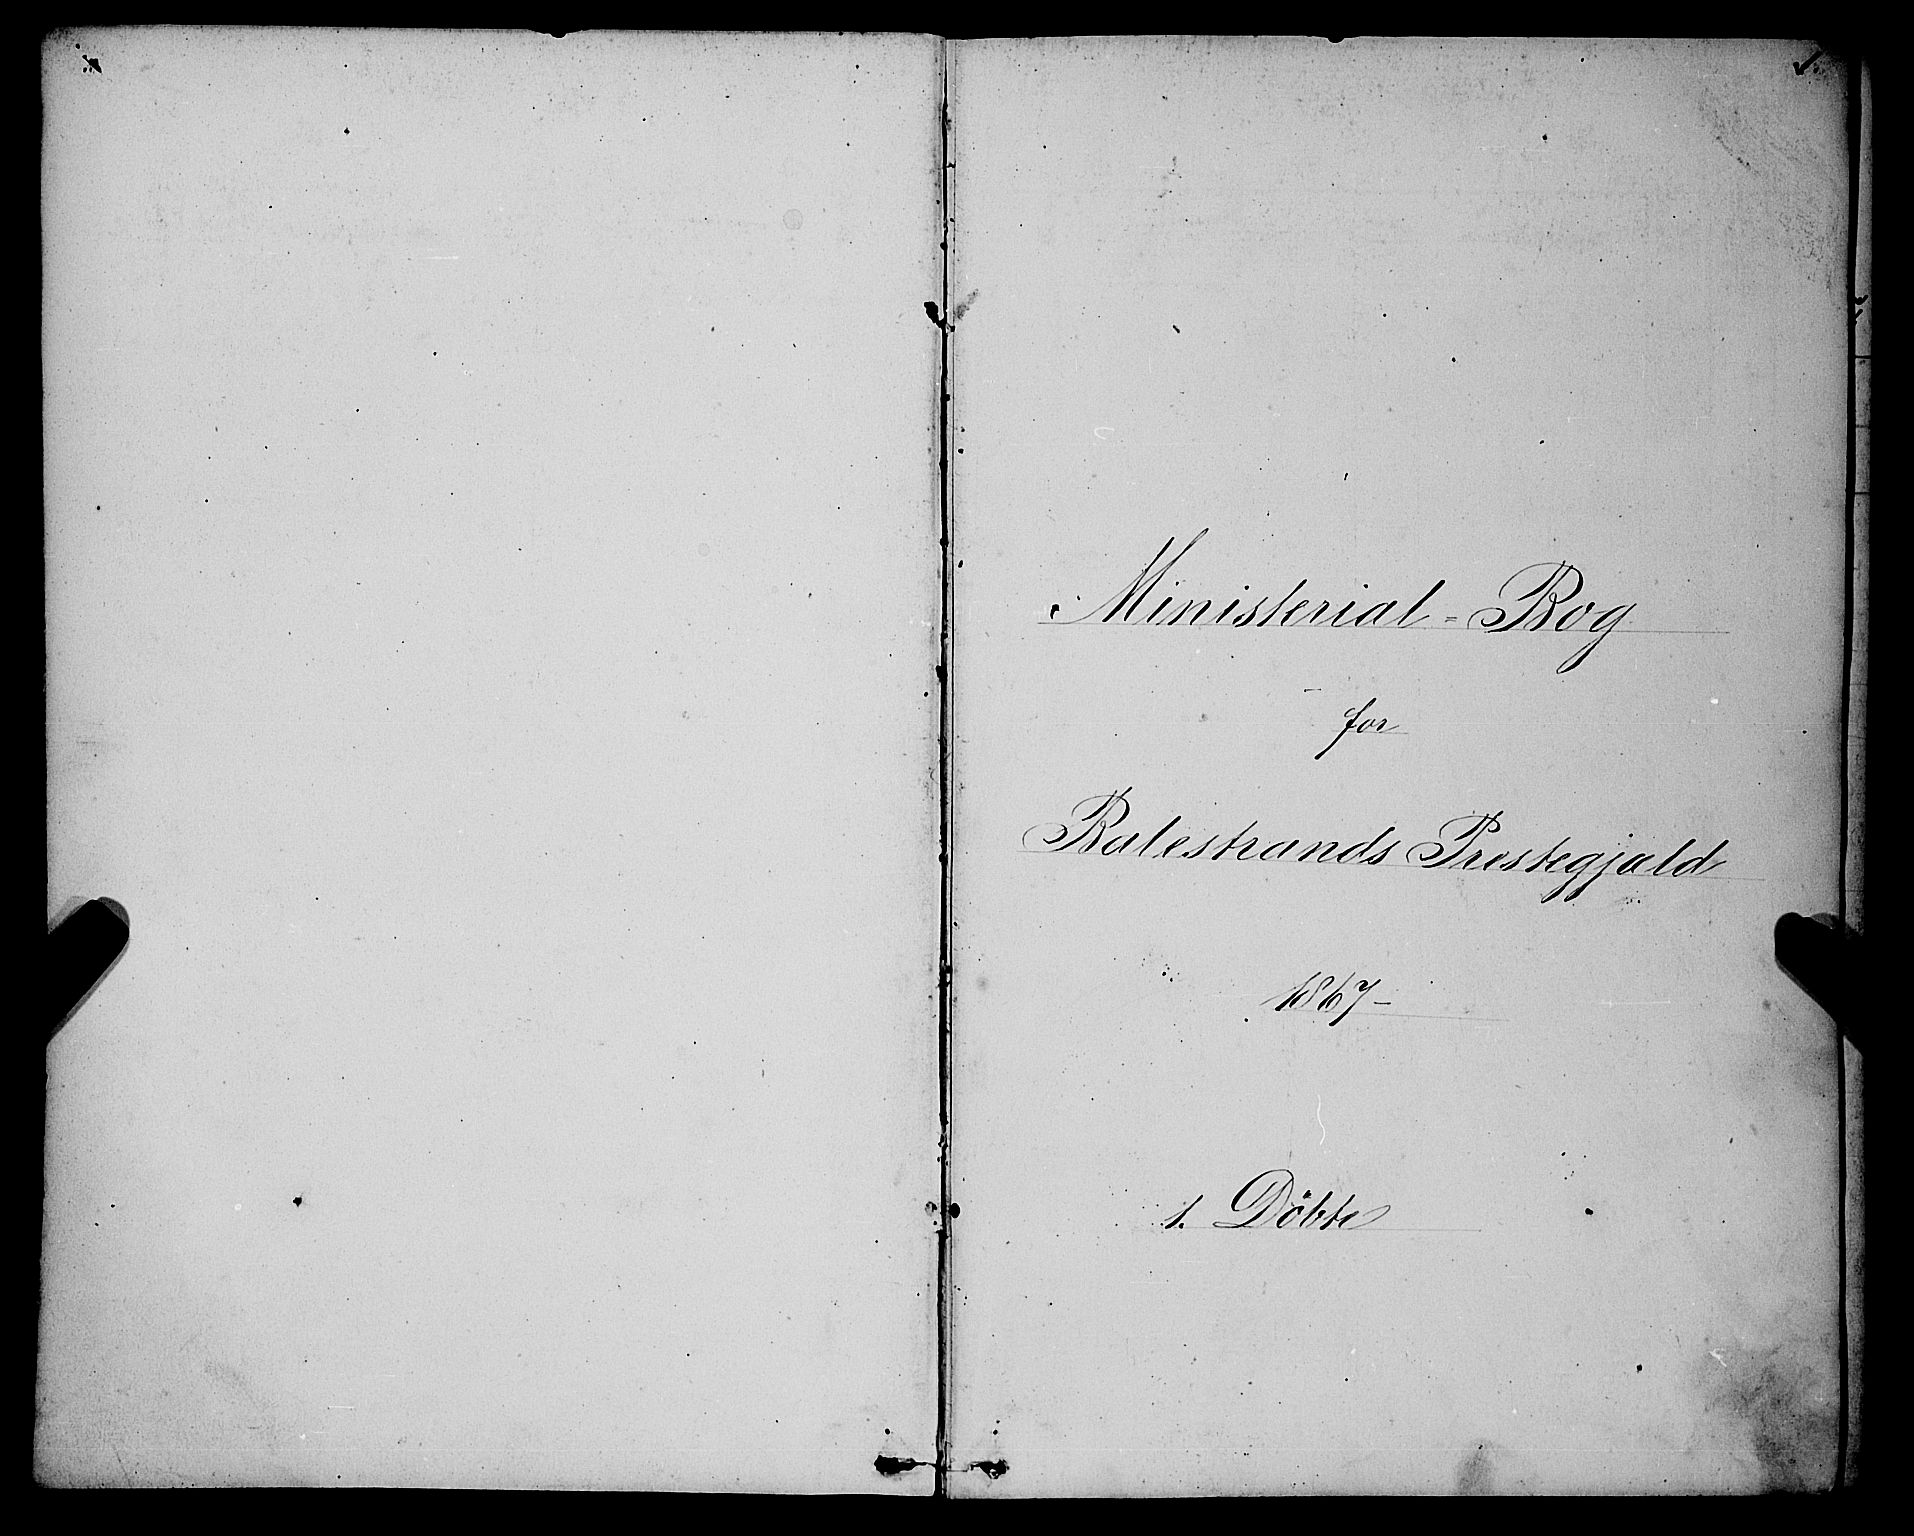 Ministerial-Bog
for
Balestrands Prestegjæld
1867-
1. Döbte